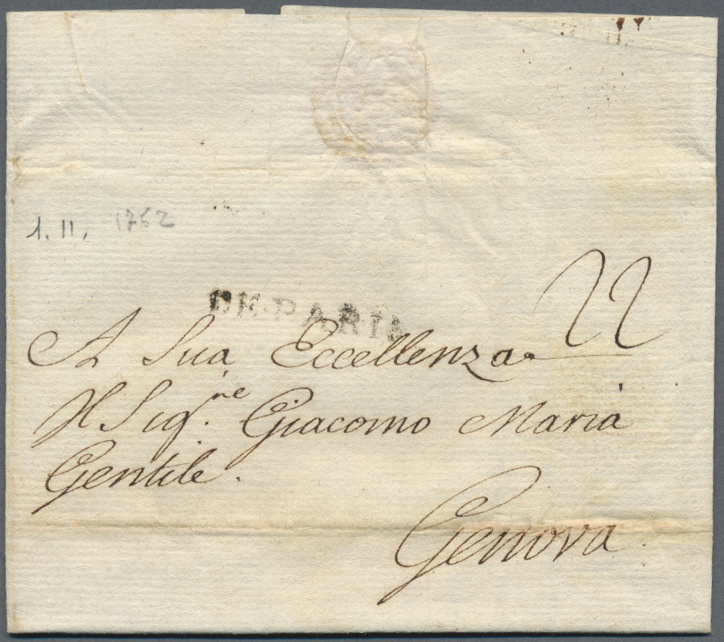 1. II. 1762
DE PARIS
22
A Sua Eccellenza
Il Sig.re Giacomo Maria
Gentile.
Genova.